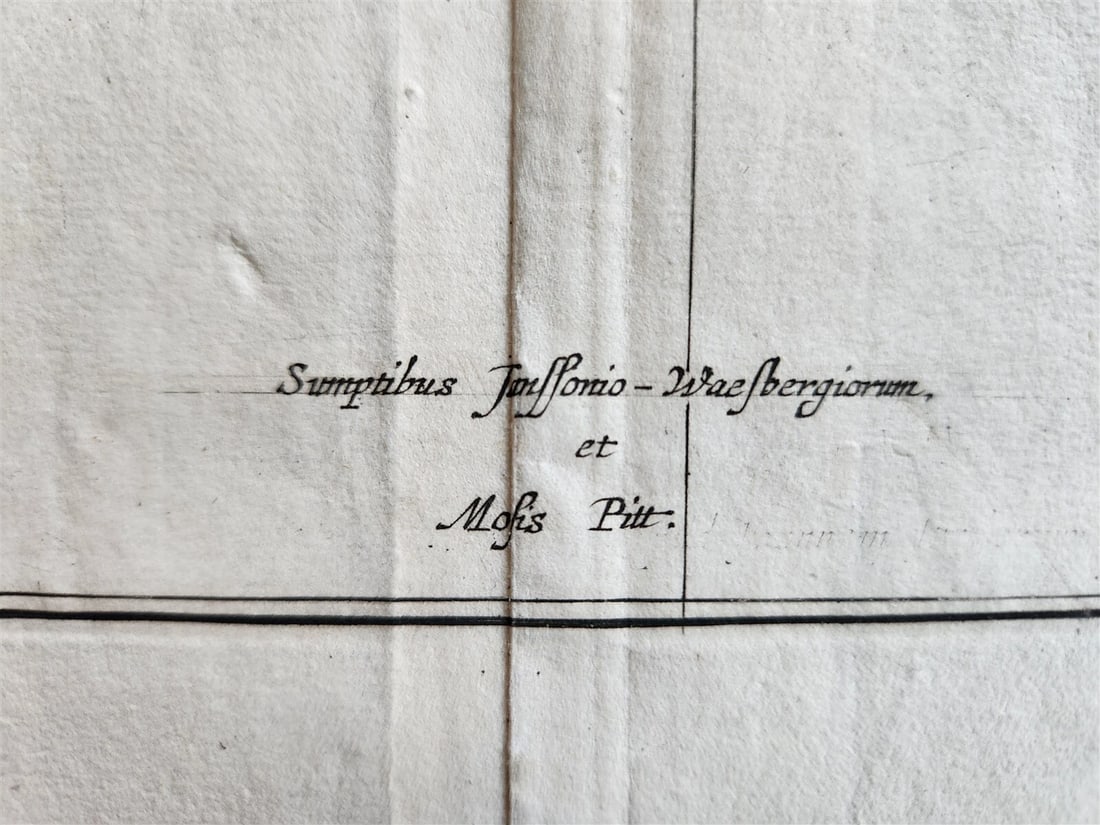 Sumptibus Janſſonio-Waeſbergiorum,
et
Moſis Pitt.